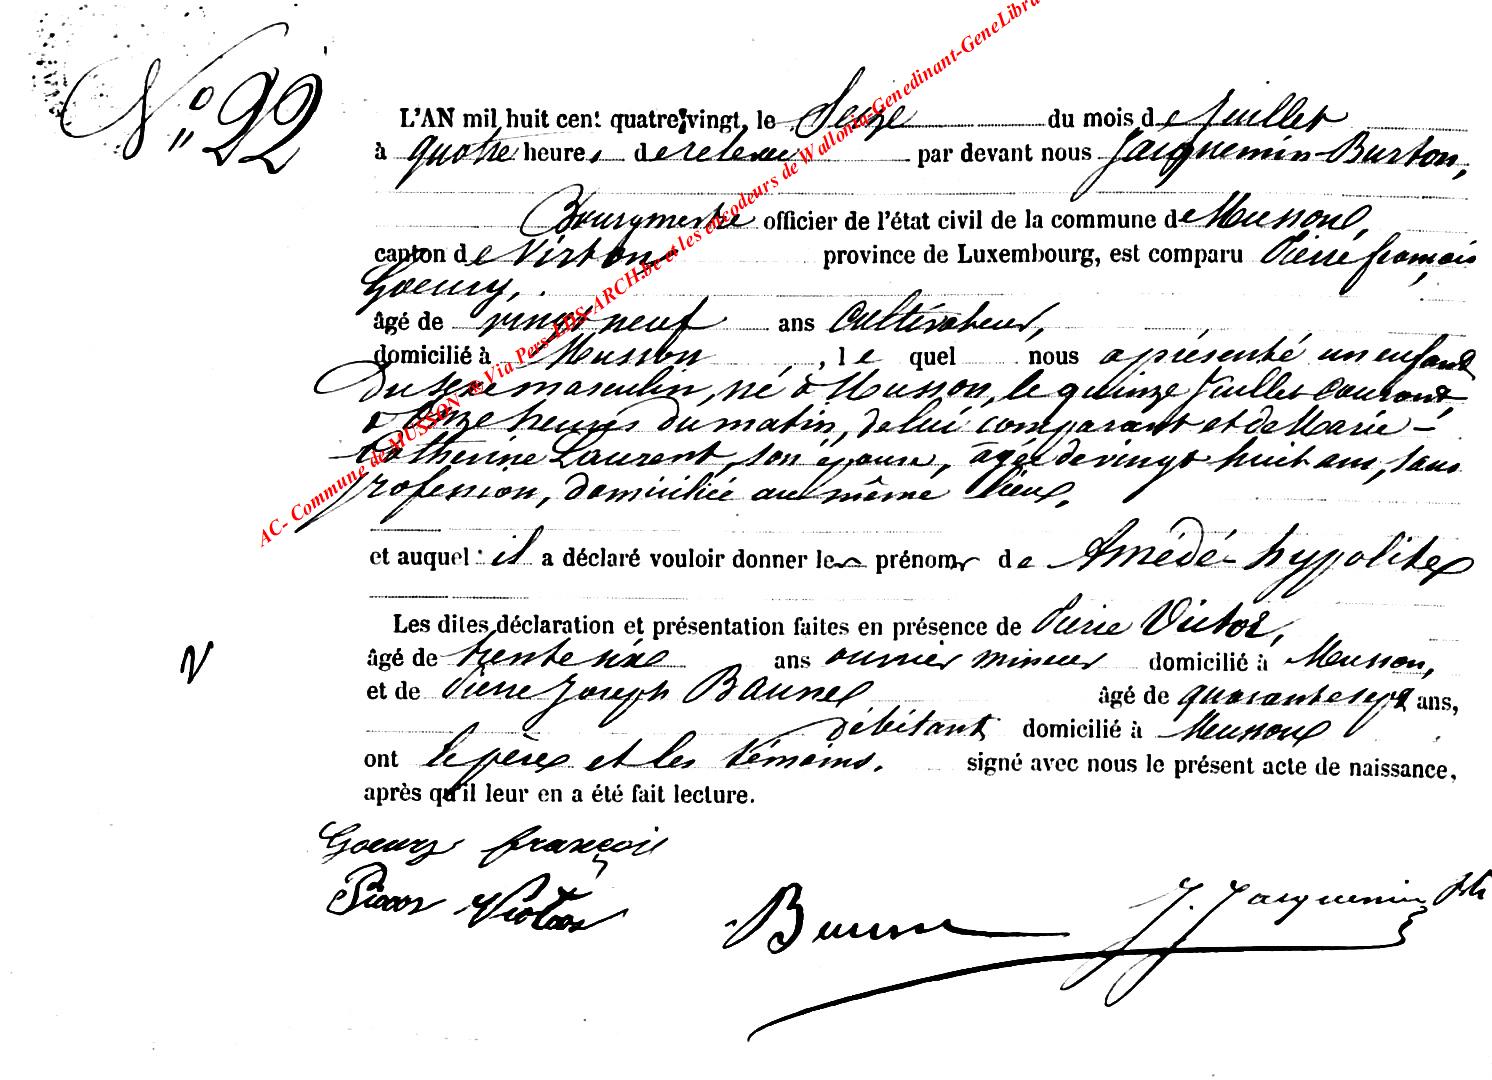 N° 22
L'AN mil huit cent quatre-vingt, le Seize du mois de Juillet
à quatre heures de relevée par devant nous Jacquemin-Burton,
Bourgmestre officier de l'état civil de la commune de Musson,
canton de Virton province de Luxembourg, est comparu Pierre françois
Goeury,
âgé de vingt neuf ans Cultivateur,
domicilié à Musson, le quel nous a présenté un enfant
du sexe masculin, né à Musson, le quinze Juillet courant,
à onze heures du matin, de lui comparant et de Marie-
Catherine Laurent, son épouse, âgée de vingt huit ans, sans
profession, domiciliée au même lieu,
et auquel il a déclaré vouloir donner les prénoms de Amédé hypolite
Les dites déclaration et présentation faites en présence de Pierre Victor,
âgé de trente six ans ouvrier mineur domicilié à Musson,
et de Pierre Joseph Baunel âgé de quarante sept ans,
débitant domicilié à Musson
ont le père et les témoins. signé avec nous le présent acte de naissance,
après qu'il leur en a été fait lecture.
Goeury françois
Pierre Victor
J. Jacquemin
AC- Commune de MUSSON & Via Pers-LDS-ARCH.be et les encodeurs de Wallonia-Genedinant-GeneLibra